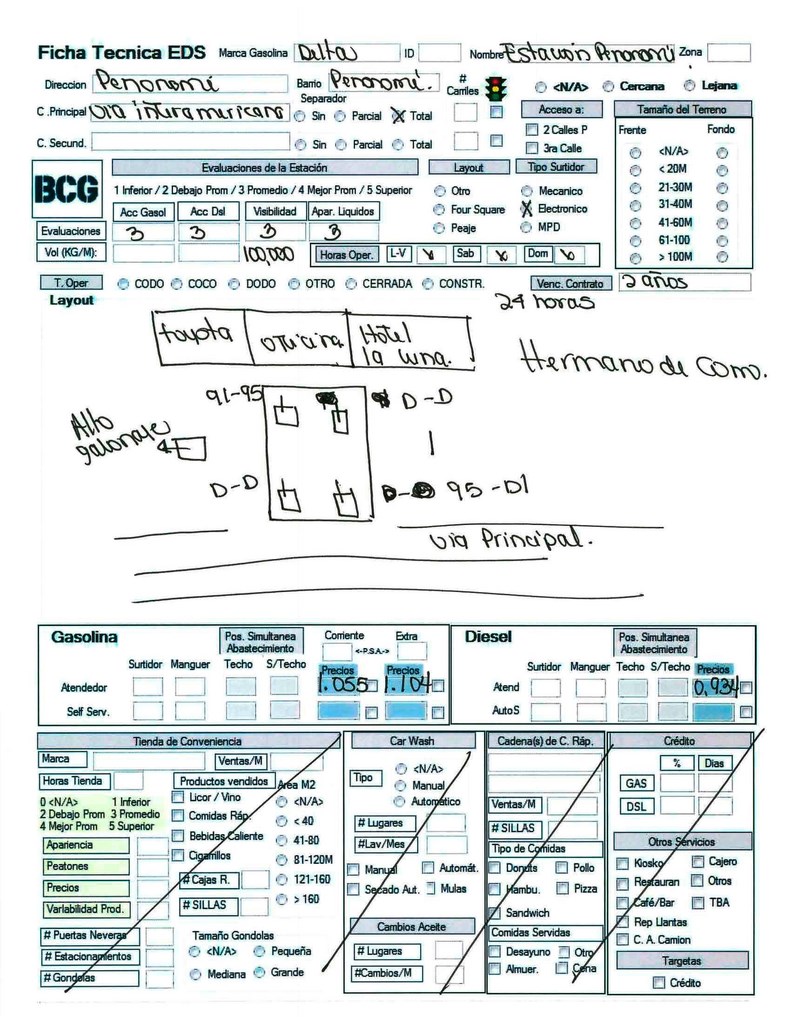 Ficha Tecnica EDS Marca Gasolina Delta ID Nombre Estacion Penonomí Zona
Direccion Penonomí Barrio Penonomí. # Carriles <N/A> Cercana Lejana
Separador
C .Principal Via interamericana Sin Parcial Total Acceso a: Tamaño del Terreno
2 Calles P Frente Fondo
C. Secund. Sin Parcial Total 3ra Calle <N/A>
BCG Evaluaciones de la Estación Layout Tipo Surtidor < 20M
1 Inferior / 2 Debajo Prom / 3 Promedio / 4 Mejor Prom / 5 Superior Otro Mecanico 21-30M
Acc Gasol Acc Dsl Visibilidad Apar. Liquidos Four Square Electronico 31-40M
41-60M
Evaluaciones 3 3 3 3 Peaje MPD 61-100
Vol (KG/M): 100,000 Horas Oper. L-V x Sab x Dom x > 100M
T. Oper CODO COCO DODO OTRO CERRADA CONSTR. Venc. Contrato 2 años
Layout 24 horas
toyota oficina Hotel la luna.
Hermano de Como.
91-95 D-D
Alto galonaje
D-D D- 95-D1
via Principal.
Gasolina Pos. Simultanea Abastecimiento Corriente Extra Diesel Pos. Simultanea Abastecimiento
<-P.S.A->
Surtidor Manguer Techo S/Techo Precios Precios Surtidor Manguer Techo S/Techo Precios
Atendedor 1.055 1.104 Atend 0,934
Self Serv. AutoS
Tienda de Conveniencia Car Wash Cadena(s) de C. Ráp. Crédito
Marca Ventas/M % Dias
Horas Tienda Productos vendidos Area M2 Tipo <N/A> GAS
0 <N/A> 1 Inferior Licor / Vino <N/A> Manual
2 Debajo Prom 3 Promedio Comidas Ráp. < 40 Automático Ventas/M DSL
4 Mejor Prom 5 Superior Bebidas Caliente 41-80 # Lugares # SILLAS
Apariencia Cigarrillos 81-120M #Lav/Mes Tipo de Comidas Otros Servicios
Peatones # Cajas R. 121-160 Manual Automát. Donuts Pollo Kiosko Cajero
Precios # SILLAS > 160 Secado Aut. Mulas Hambu. Pizza Restauran Otros
Variabilidad Prod. Sandwich Café/Bar TBA
# Puertas Neveras Tamaño Gondolas Cambios Aceite Comidas Servidas Rep Llantas
# Estacionamientos <N/A> Pequeña # Lugares Desayuno Otro C. A. Camion
# Gondolas Mediana Grande #Cambios/M Almuer. Cena Targetas
Crédito